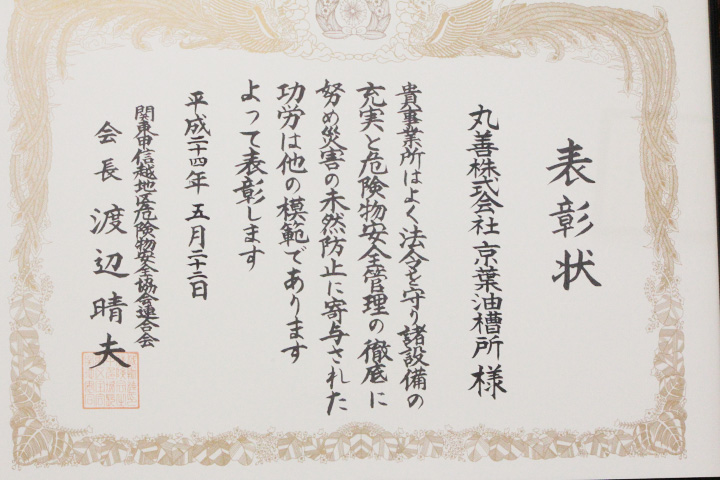 表彰状
丸善株式会社 京葉油槽所 様
貴事業所はよく法令を守り諸設備の
充実と危険物安全管理の徹底に
努め災害の未然防止に寄与された
功労は他の模範であります
よって表彰します
平成二十四年 五月二十二日
関東甲信越地区危険物安全協会連合会
会長 渡辺晴夫